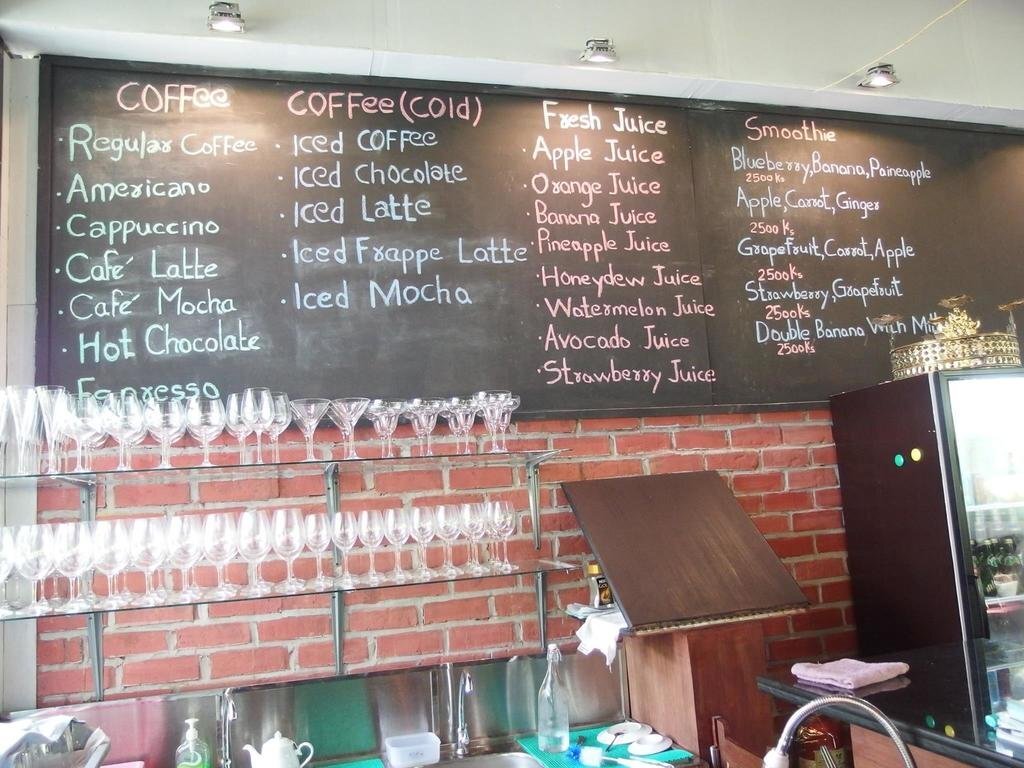 COFFee
· Regular Coffee
· Americano
· Cappuccino
· Café Latte
· Café Mocha
· Hot Chocolate
· Espresso
COFFee (COld)
· Iced COFFee
· Iced Chocolate
· Iced Latte
· Iced Frappe Latte
· Iced Mocha
Fresh Juice
· Apple Juice
· Orange Juice
· Banana Juice
· Pineapple Juice
· Honeydew Juice
· Watermelon Juice
· Avocado Juice
· Strawberry Juice
Smoothie
Blueberry, Banana, Paineapple
2500 Ks
Apple, Carrot, Ginger
2500 Ks
Grapefruit, Carrot, Apple
2500Ks
Strawberry, Grapefruit
2500Ks
Double Banana With
2500Ks